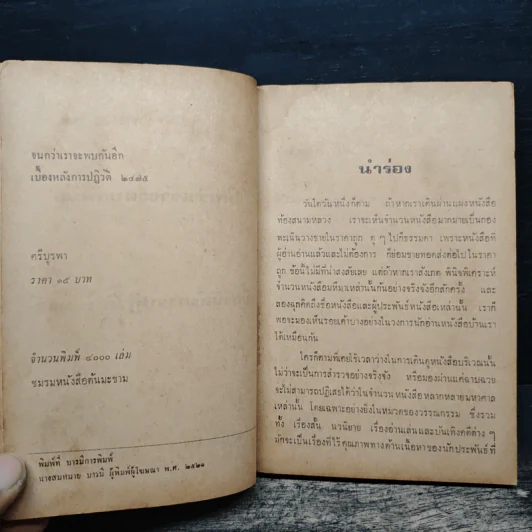 จนกว่าเราจะพบกันอีก
เบื้องหลังการปฏิวัติ ๒๔๗๕
ศรีบูรพา
ราคา ๑๕ บาท
จำนวนพิมพ์ ๔๐๐๐ เล่ม
ชมรมหนังสือต้นมะขาม
พิมพ์ที่ บารมีการพิมพ์
นายสมหมาย บารมี ผู้พิมพ์ผู้โฆษณา พ.ศ. ๒๕๒๑
นำร่อง
วันใดวันหนึ่งก็ตาม ถ้าหากเราเดินผ่านแผงหนังสือ
ท้องสนามหลวง เราจะเห็นจำนวนหนังสือมากมายเป็นกอง
พะเนินวางขายในราคาถูก ดู ๆ ไปก็ธรรมดา เพราะหนังสือที่
ผู้อ่านอ่านแล้วและไม่ต้องการ ก็ย่อมขายทอดส่งต่อไปในราคา
ถูก ข้อนี้ไม่มีที่น่าสงสัยเลย แต่ถ้าหากเราสังเกต พินิจพิเคราะห์
จำนวนหนังสือมหึมาเหล่านั้นกันอย่างจริงจังอีกสักครั้ง และ
ลองฉุกคิดถึงชื่อหนังสือและผู้ประพันธ์หนังสือเหล่านั้น เราก็
พอจะมองเห็นรอยเค้าบางอย่างในวงการนักอ่านหนังสือบ้านเรา
ได้เหมือนกัน
ใครก็ตามที่เคยใช้เวลาว่างในการเดินดูหนังสือบริเวณนั้น
ไม่ว่าจะเป็นการสำรวจอย่างจริงจัง หรือมองผ่านแค่ฉาบฉวย
จะไม่สามารถปฏิเสธได้ว่าในจำนวนหนังสือหลากหลายมหาศาล
เหล่านั้น โดยเฉพาะอย่างยิ่งในหมวดของวรรณกรรม ซึ่งรวม
ทั้ง เรื่องสั้น นวนิยาย เรื่องอ่านเล่นและบันเทิงคดีต่าง ๆ
มักจะเป็นเรื่องที่ไร้คุณภาพทางด้านเนื้อหาของนักประพันธ์ที่